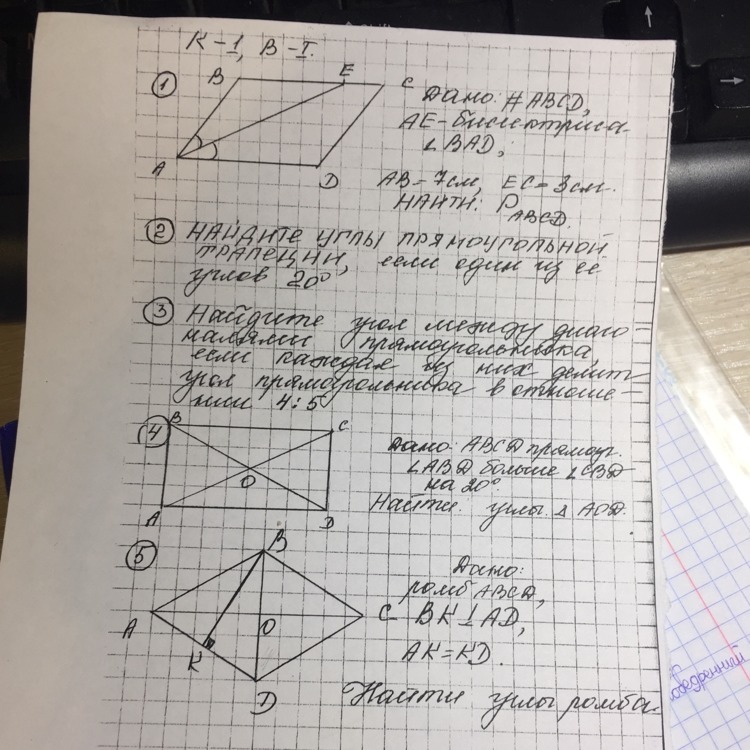 К-1, В-I.
① B E C
A D
Дано: # ABCD,
AE-биссектриса
∠BAD;
AB=7см, EC=3см.
НАЙТИ: P ABCD.
② НАЙДИТЕ УГЛЫ ПРЯМОУГОЛЬНОЙ
ТРАПЕЦИИ, если один из её
углов 20°
③ Найдите угол между диаго-
налями прямоугольника,
если каждая из них делит
угол прямоугольника в отноше-
нии 4:5
④ B C
O
A D
Дано: ABCD прямоуг.
∠ABD больше ∠CBD
на 20°
Найти углы Δ AOD.
⑤ B
A O C
K
D
Дано:
ромб ABCD,
BK⊥AD,
AK=KD.
Найти углы ромба.